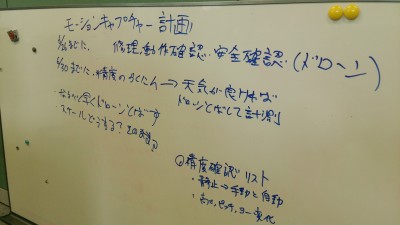 モーションキャプチャー計画
6/26までに、修理、動作確認、安全確認、(ドローン)
6/30までに、精度のかくにん→天気が良ければ
ドローンとばして計測
・なるべく早くドローンとばす
・スケールどうする?
○精度確認リスト
・静止→手動と自動
・ピッチ、ヨー変化